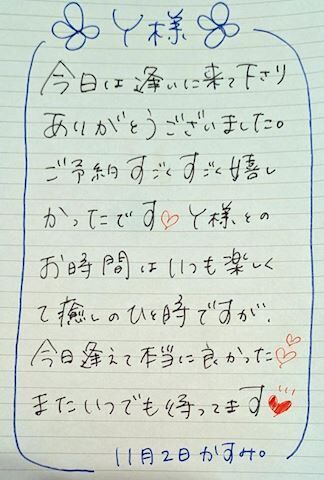 Y様
今日は逢いに来て下さり
ありがとうございました。
ご予約すごくすごく嬉し
かったです♡Y様との
お時間はいつも楽しく
て癒しのひと時ですが、
今日逢えて本当に良かった♡♡
またいつでも待ってます♥
11月2日かすみ。